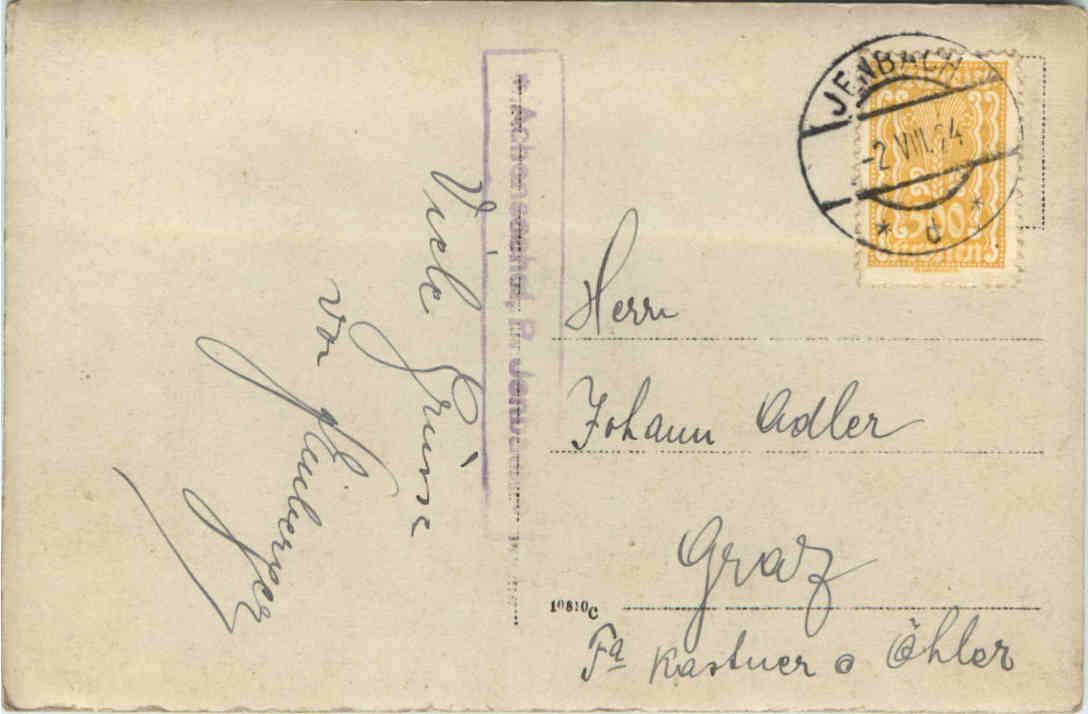 Viele Grüsse
von
Herrn
Johann Adler
Graz
Fa Kastner o Öhler
10810C
+ Achenseehof, P. Jenbach
JENBACH
-2.VIII.24
* c *
500
KRONEN